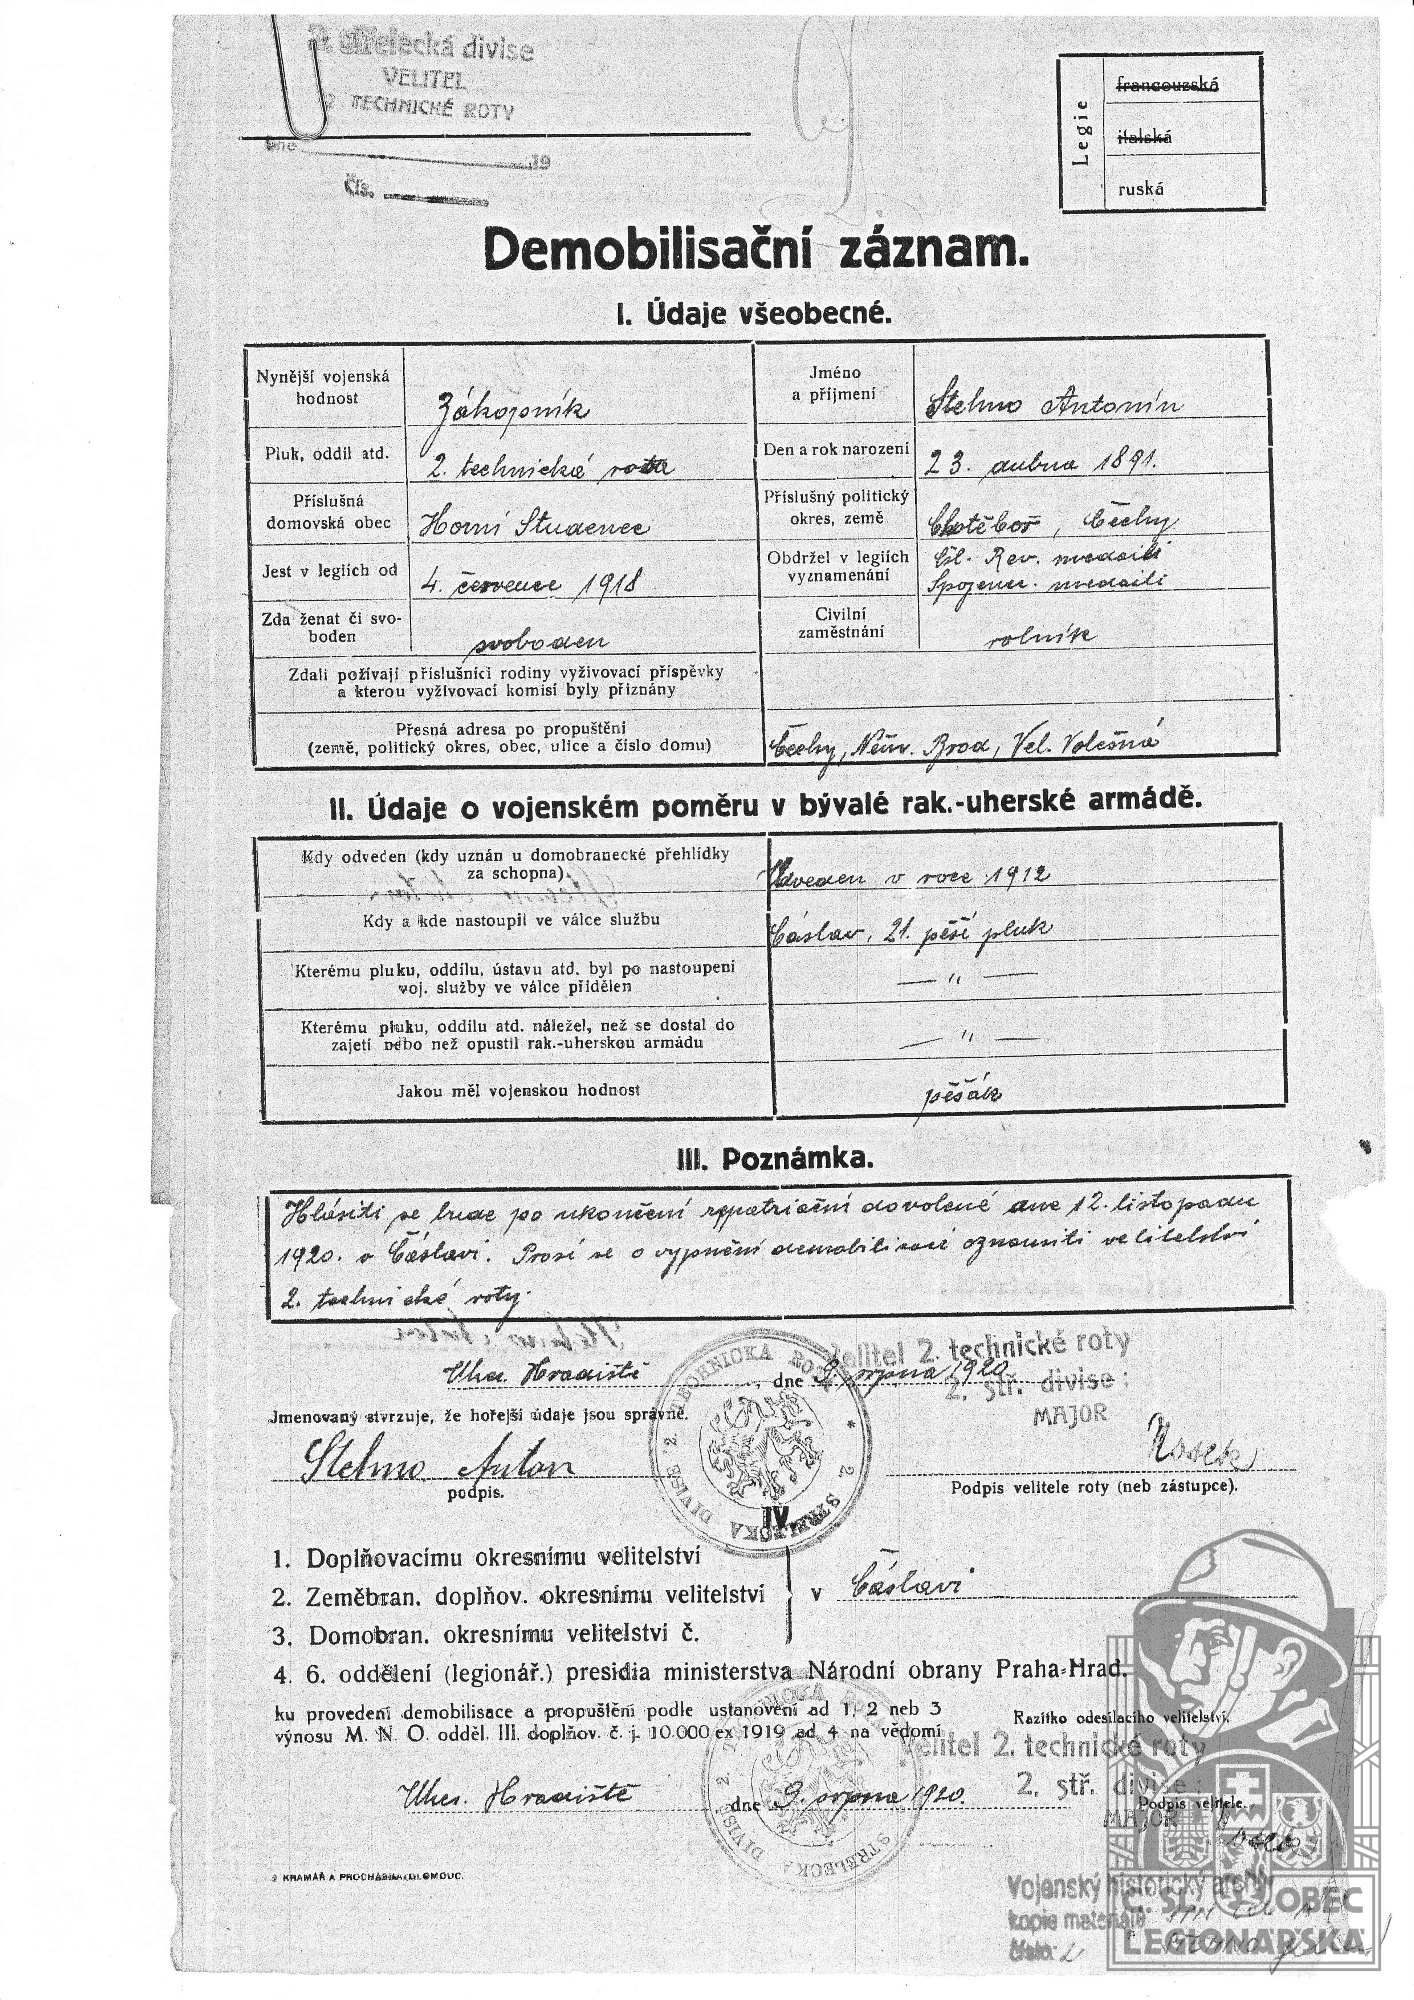 střelecká divise
VELITEL
TECHNICKÉ ROTY
dne 19
Čís.
Legie
francouzská
italská
ruská
Demobilisační záznam.
I. Údaje všeobecné.
Nynější vojenská hodnost
Zákopník
Jméno a příjmení
Stehno Antonín
Pluk, oddíl atd.
2. technická rota
Den a rok narození
23. dubna 1891.
Příslušná domovská obec
Horní Studenec
Příslušný politický okres, země
Chotěboř, Čechy
Jest v legiích od
4. července 1918
Obdržel v legiích vyznamenání
Čsl. Rev. medaili
Spojenec. medaili
Zda ženat či svo-
boden
svoboden
Civilní zaměstnání
rolník
Zdali požívají příslušníci rodiny vyživovací příspěvky
a kterou vyživovací komisí byly přiznány
Přesná adresa po propuštění
(země, politický okres, obec, ulice a číslo domu)
Čechy, Něm. Brod, Vel. Volešná
II. Údaje o vojenském poměru v bývalé rak.-uherské armádě.
Kdy odveden (kdy uznán u domobranecké přehlídky
za schopna)
Odveden v roce 1912
Kdy a kde nastoupil ve válce službu
Čáslav, 21. pěší pluk
Kterému pluku, oddílu, ústavu atd. byl po nastoupení
voj. služby ve válce přidělen
— " —
Kterému pluku, oddílu atd. náležel, než se dostal do
zajetí nebo než opustil rak.-uherskou armádu
— " —
Jakou měl vojenskou hodnost
pěšák
III. Poznámka.
Hlásiti se bude po ukončení repatriační dovolené dne 12. listopadu
1920. v Čáslavi. Prosí se o vyplnění demobilisaci oznámiti velitelství
2. technické roty.
Velitel 2. technické roty
2. stř. divise:
MAJOR
Uher. Hradiště, dne 9. srpna 1920
Jmenovaný stvrzuje, že hořejší údaje jsou správné.
Stehno Anton
podpis.
Nosek
Podpis velitele roty (neb zástupce).
IV.
1. Doplňovacímu okresnímu velitelství
2. Zeměbran. doplňov. okresnímu velitelství
v Čáslavi
3. Domobran. okresnímu velitelství č.
4. 6. oddělení (legionář.) presidia ministerstva Národní obrany Praha-Hrad.
ku provedení demobilisace a propuštění podle ustanovení ad 1, 2 neb 3
výnosu M. N. O. odděl. III. doplňov. č. j. 10.000 ex 1919 ad 4 na vědomí
Razítko odesílacího velitelství.
Velitel 2. technické roty
2. stř. divise:
MAJOR
Podpis velitele.
Uher. Hradiště, dne 9. srpna 1920.
KRAMÁŘ A PROCHÁZKA, OLOMOUC.
Vojenský historický archiv
kopie materiálu
číslo: 2
ČSL. OBEC
LEGIONÁŘSKÁ